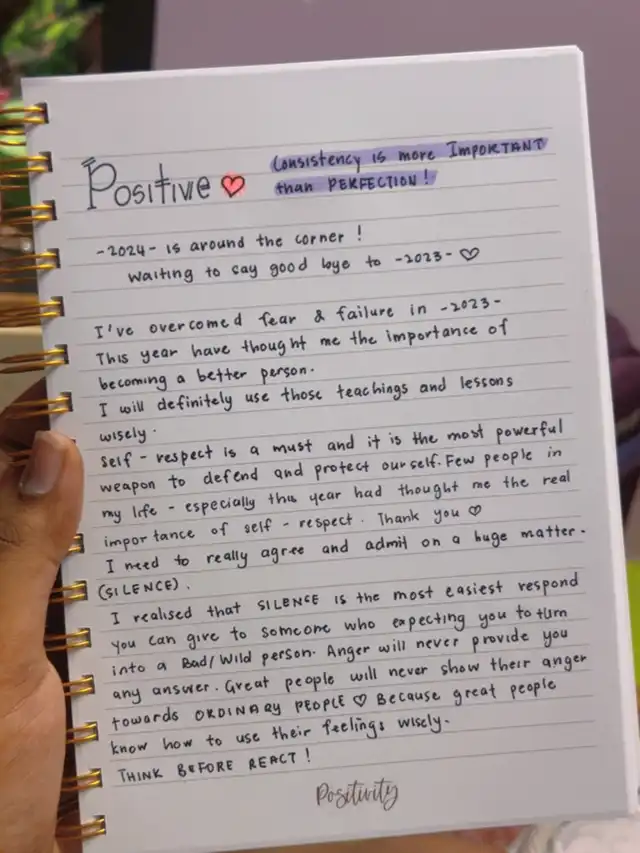 Positive ♥
Consistency is more IMPORTANT
than PERFECTION!
-2024- is around the corner !
Waiting to say good bye to -2023- ♡
I've overcomed fear & failure in -2023-
This year have thought me the importance of
becoming a better person.
I will definitely use those teachings and lessons
wisely.
Self - respect is a must and it is the most powerful
weapon to defend and protect ourself. Few people in
my life - especially this year had thought me the real
importance of self - respect. Thank you ♡
I need to really agree and admit on a huge matter.
(SILENCE).
I realised that SILENCE is the most easiest respond
you can give to someone who expecting you to turn
into a Bad/Wild person. Anger will never provide you
any answer. Great people will never show their anger
towards ORDINARY PEOPLE ♡ Because great people
know how to use their feelings wisely.
THINK BEFORE REACT!
Positivity